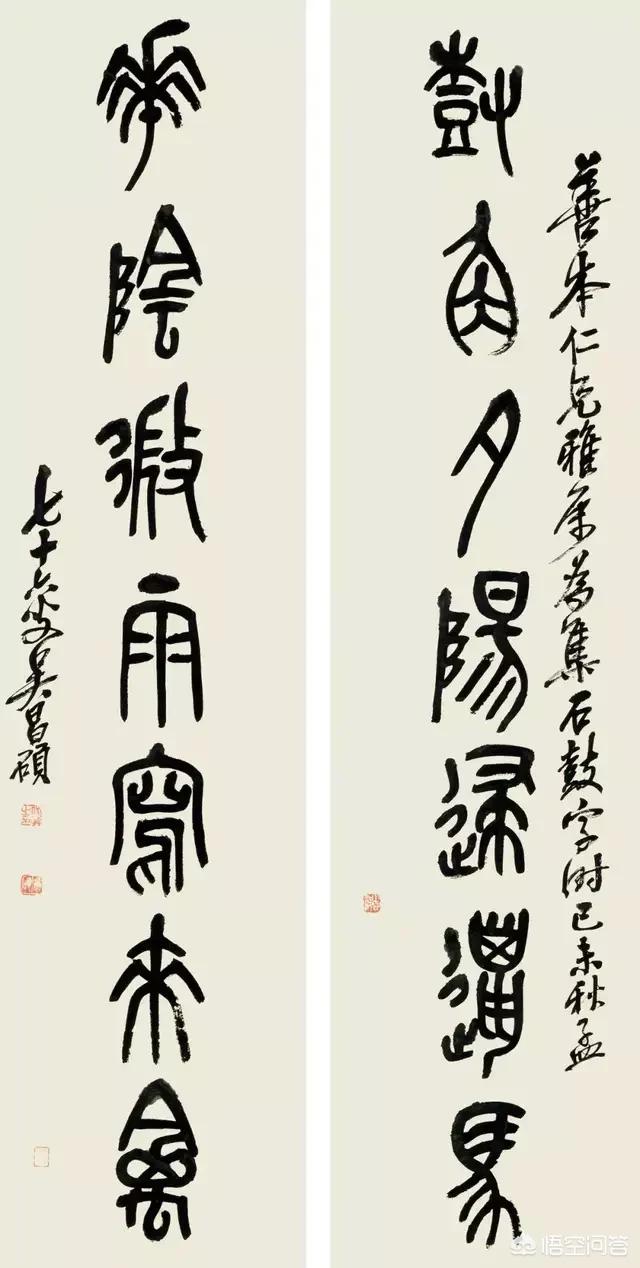 善本仁兄雅屬為集石鼓字時己未秋孟
尌角夕陽歸邋馬
華陰微雨寫來禽
七十六叟吳昌碩
悟空问答